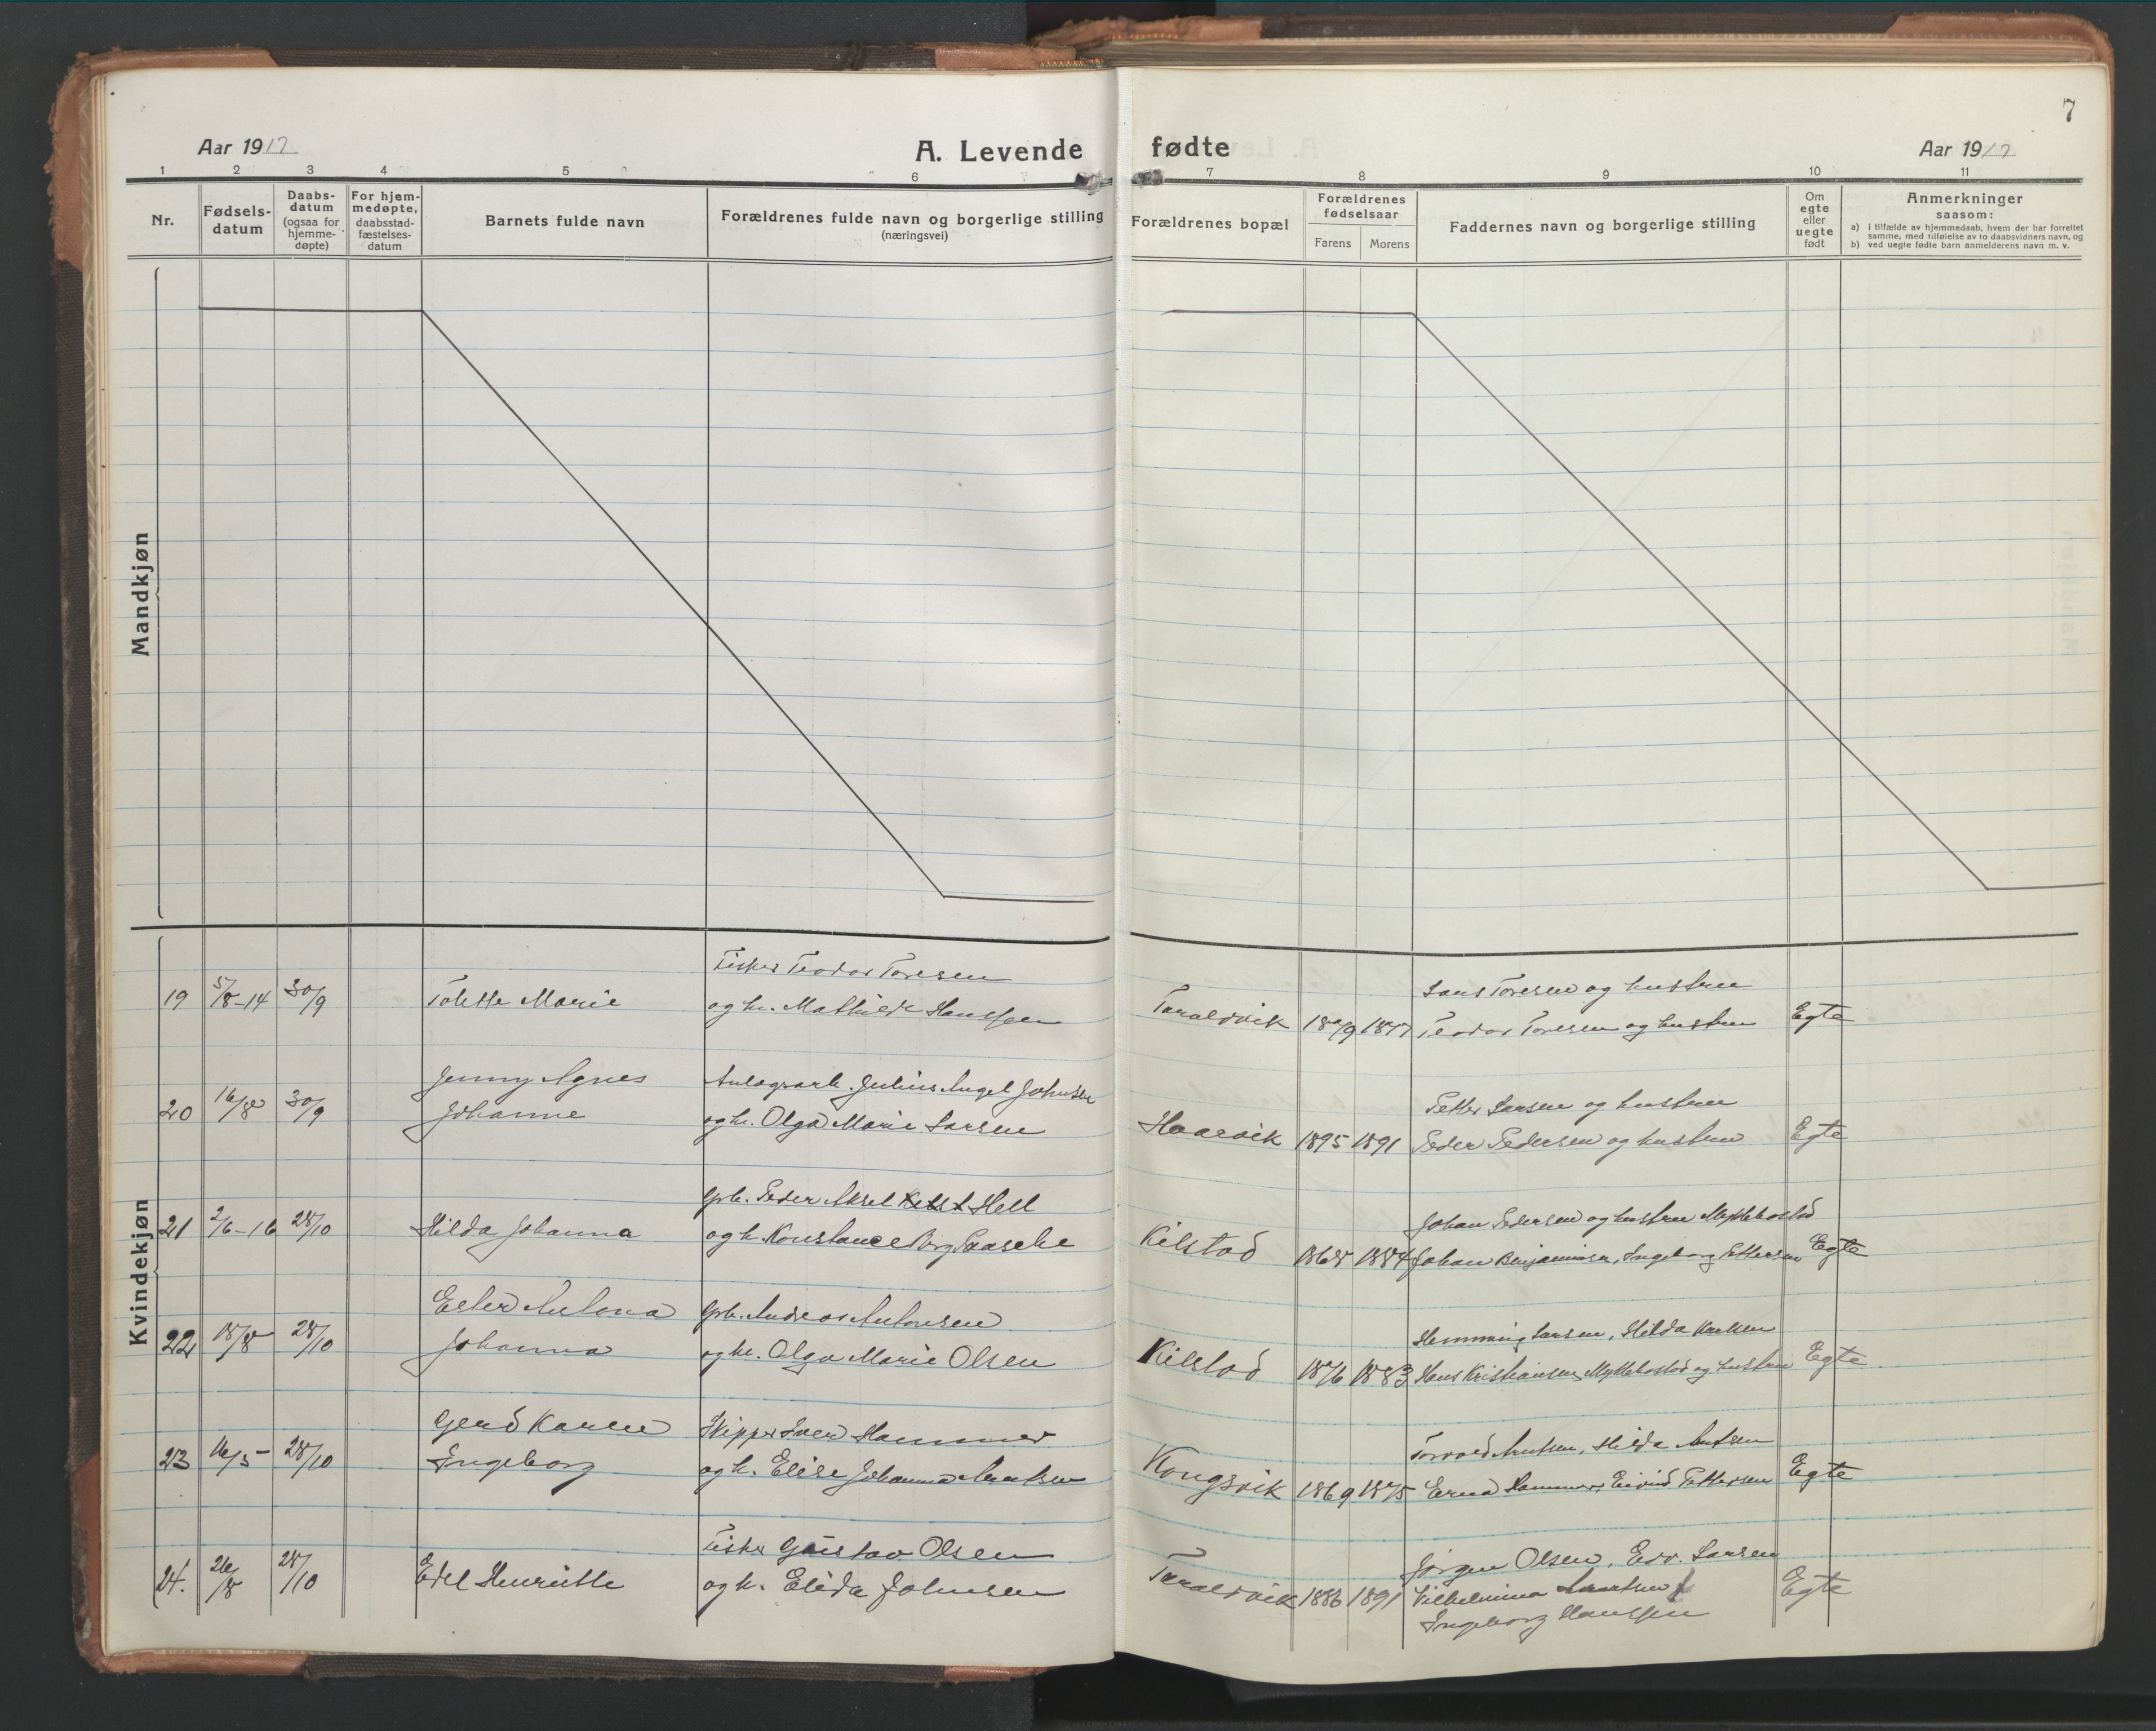 7
Aar 1917
A. Levende
fødte
Aar 1917
1 2 3 4 5 6 7 8 9 10 11
Nr.
Fødsels-
datum
Daabs-
datum
(ogsaa for
hjemme-
døpte)
For hjem-
medøpte,
daabsstad-
fæstelses-
datum
Barnets fulde navn
Forældrenes fulde navn og borgerlige stilling
(næringsvei)
Forældrenes bopæl
Forældrenes
fødselsaar
Farens Morens
Faddernes navn og borgerlige stilling
Om
egte
eller
uegte
født
Anmerkninger
saasom:
a) I tilfælde av hjemmedaab, hvem der har forrettet
samme, med tilføielse av to daabsvidners navn, og
b) ved uegte fødte barn anmelderens navn m. v.
Mandkjøn
Kvindekjøn
Fisker Teodor Toresen
19 5/8-14 30/9 Tolette Marie og h. Mathilde Hanssen
Lars Toresen og hustru
Taraldvik 1877 Teodor Toresen og hustru Egte
Jenny Agnes Anlægsarb. Julius Angel Johnsen
20 16/8 30/9 Johanne og h. Olga Marie Larsen
Petter Larsen og hustru
Haarvik 1895 1891 Peder Pedersen og hustru Egte
Gbr. Peder Aksel Hell
21 2/6-16 28/10 Hilda Johanna og h. Konstance Borg Paasche
Johan Pedersen og hustru Myklebostad
Kilstad 1868 1884 Johan Benjaminsen, Ingeborg Pettersen Egte
Ester Antona Gbr. Andreas Antonsen
22 18/8 28/10 Johanna og h. Olga Marie Olsen
Hemming Larsen, Hilda Karlsen
Kilstad 1876 1883 Hans Kristiansen Myklebostad og hustru Egte
Gerd Karen Skipper Sverd Hammer
23 16/5 28/10 Ingeborg og h. Elise Johanna Arntsen
Torvald Arntsen, Hilda Arntsen
Kongsvik 1869 1875 Erna Hammer, Eivind Pettersen Egte
Fisker Gustav Olsen
24. 26/8 28/10 Edel Henriette og h. Elida Johnsen
Jørgen Olsen, Edv. Larsen
Taraldvik 1886 1891 Vilhelmina Egte
Ingeborg Hanssen